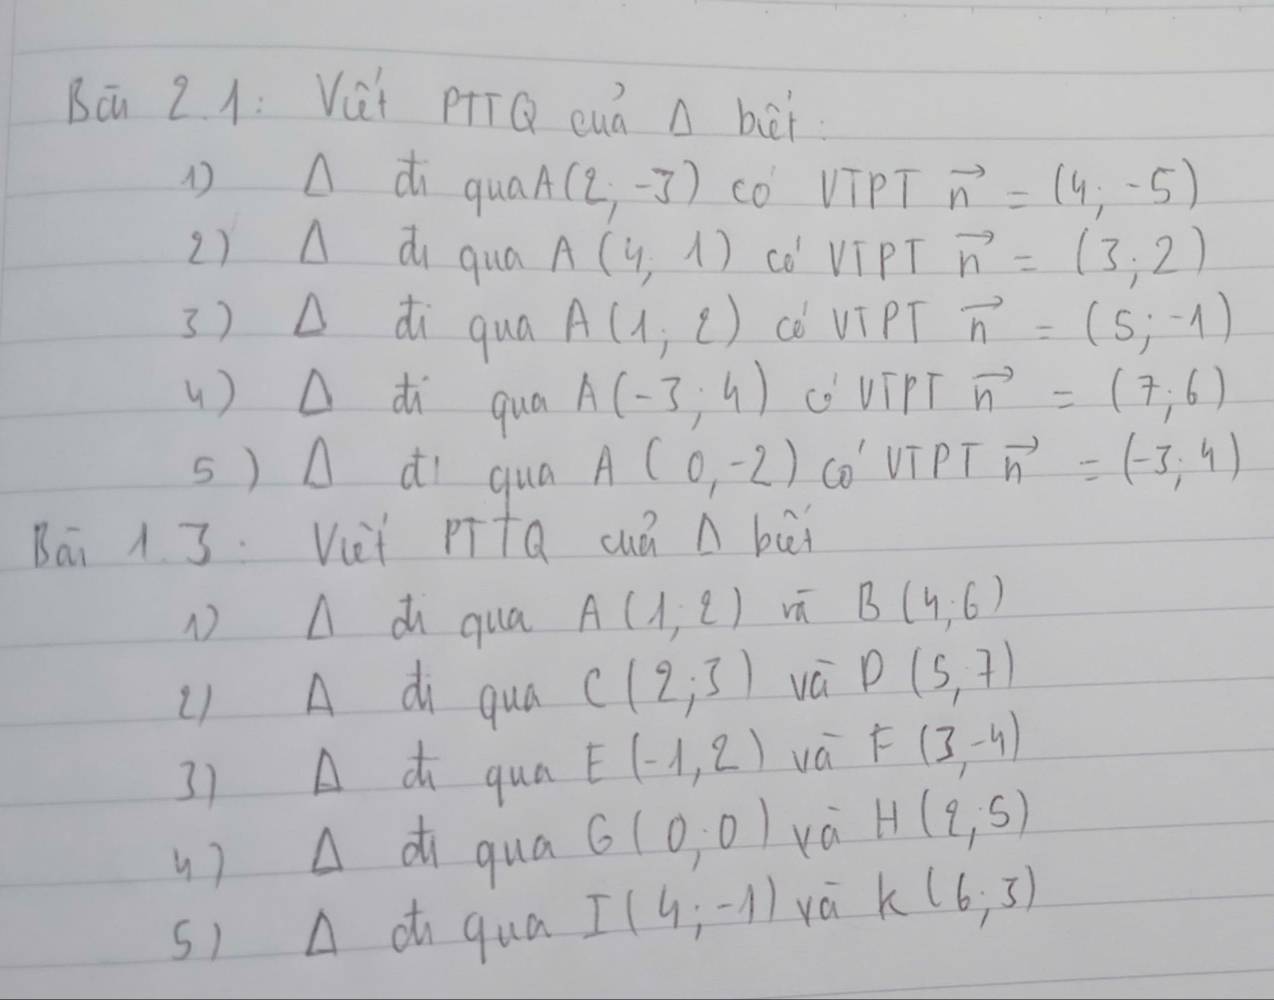 Bài 2.1: Viết PTTQ của Δ biết:
1) Δ đi qua A(2; -3) có VTPT n⃗ = (4; -5)
2) Δ đi qua A (4; 1) có VTPT n⃗ = (3; 2)
3) Δ đi qua A (1; 2) có VTPT n⃗ = (5; -1)
4) Δ đi qua A (-3; 4) có VTPT n⃗ = (7; 6)
5) Δ đi qua A (0, -2) có VTPT n⃗ = (-3; 4)
Bài 1.3: Viết PTTQ của Δ biết
1) Δ đi qua A (1; 2) và B (4; 6)
2) Δ đi qua C (2; 3) và D (5, 7)
3) Δ đi qua E (-1, 2) và F (3, -4)
4) Δ đi qua G (0; 0) và H (2, 5)
5) Δ đi qua I (4; -1) và K (6; 3)